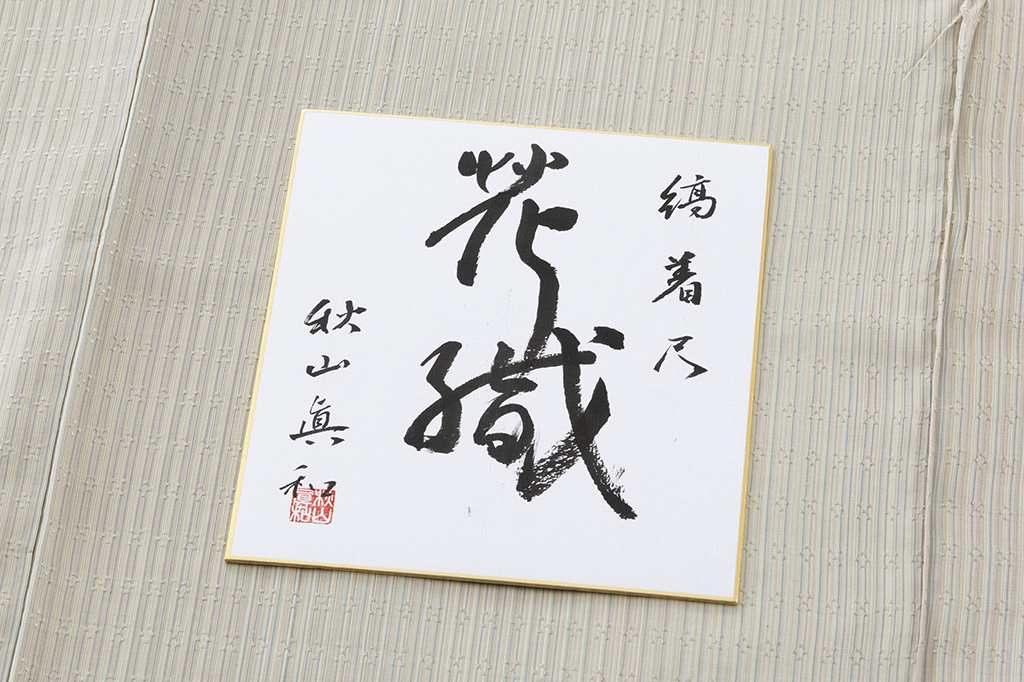 縞着尺
花織
秋山眞和
秋山眞和